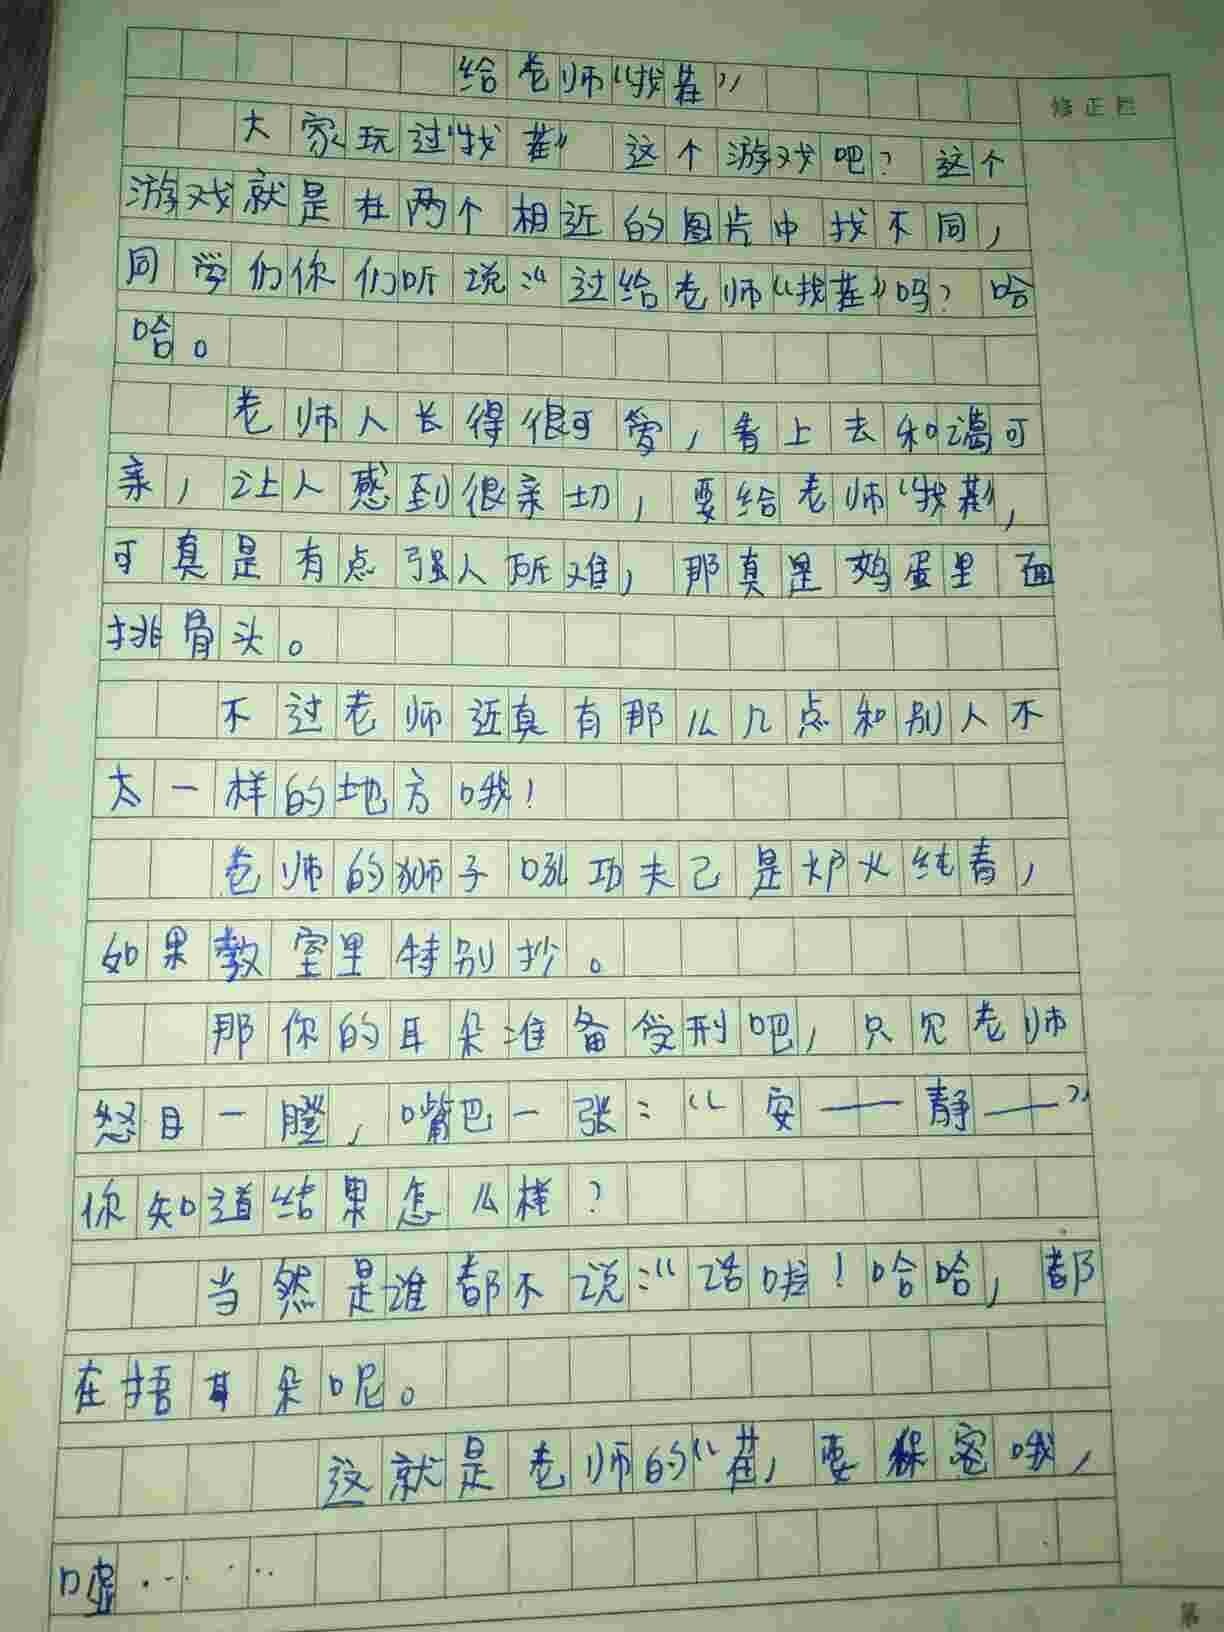 给老师“找茬”
修正栏
大家玩过“找茬”这个游戏吧？这个
游戏就是在两个相近的图片中找不同，
同学们你们听说:“过给老师“找茬”吗？哈
哈。
老师人长得很可爱，看上去和蔼可
亲，让人感到很亲切，要给老师“找茬”，
可真是有点强人所难，那真是鸡蛋里面
挑骨头。
不过老师还真有那么几点和别人不
太一样的地方哦！
老师的狮子吼功夫己是炉火纯青，
如果教室里特别抄。
那你的耳朵准备受刑吧，只见老师
怒目一瞪，嘴巴一张：“安——静——”
你知道结果怎么样？
当然是谁都不说:“话啦！哈哈，都
在捂耳朵呢。
这就是老师的“茬，要保密哦，
嘘……
第